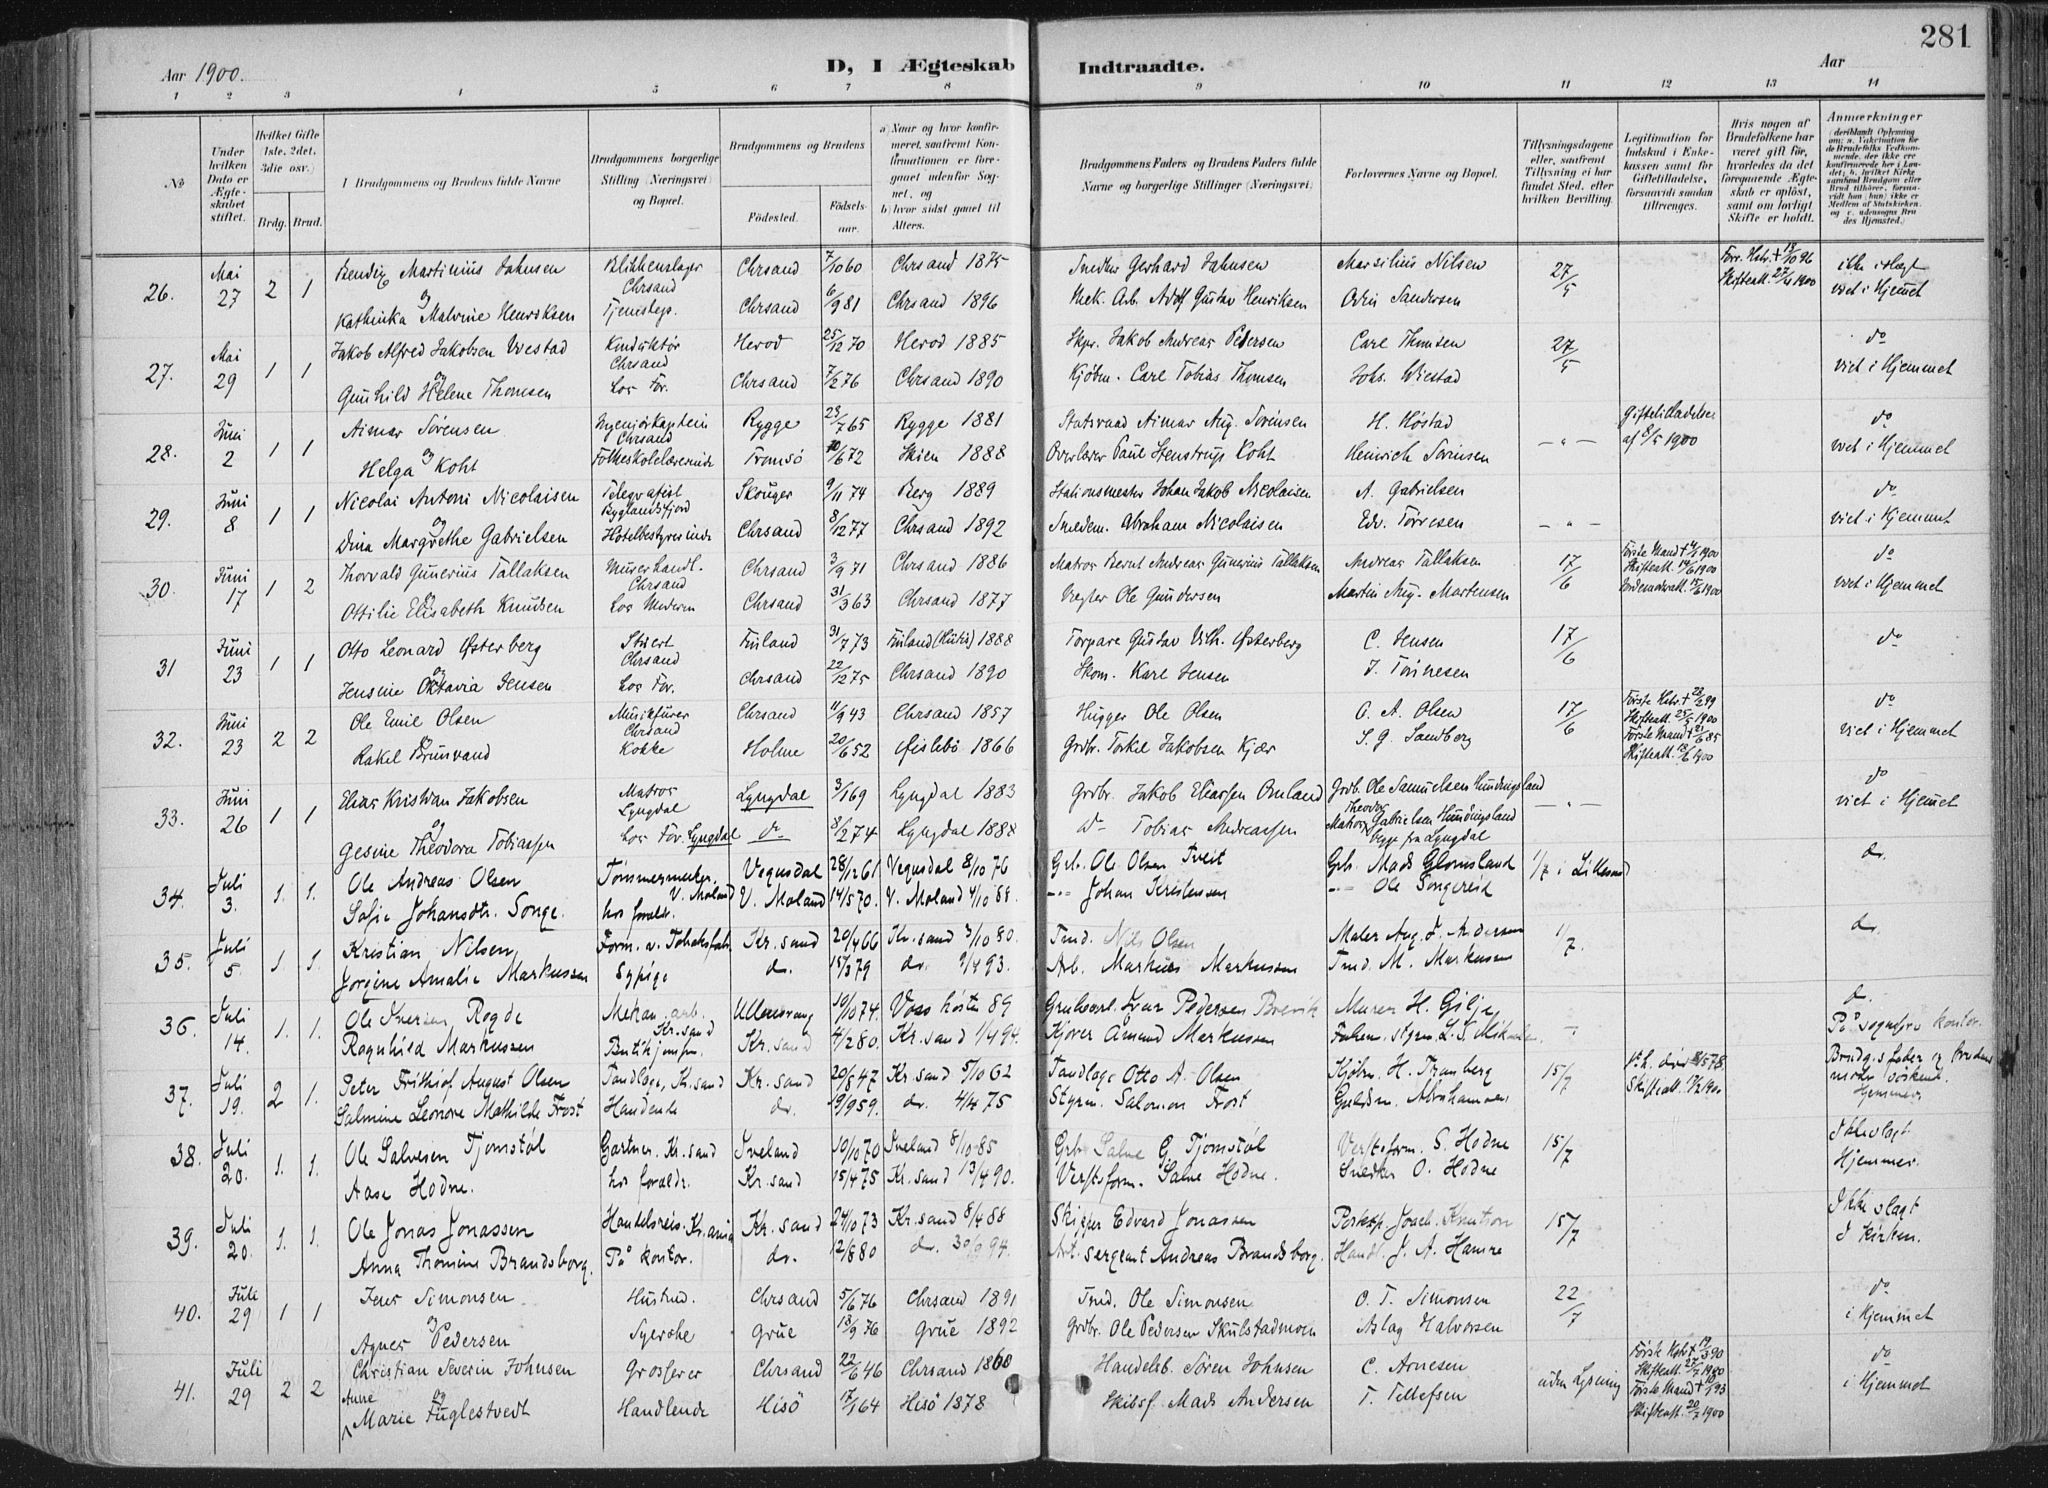 281
Aar 1900.
D, I Ægteskab Indtraadte.
Aar
1 2 3 4 5 6 7 8 9 10 11 12 13 14
No
Under hvilken Dato er Ægteskabet stiftet.
Hvilket Gifte (1ste, 2det, 3die osv.)
Brdg. Brud.
I Brudgommens og Brudens fulde Navne
Brudgommens borgerlige Stilling (Næringsvei) og Bopæl.
Brudgommens og Brudens
Födested.
Födselsaar.
a) Naar og hvor konfirmeret, saafremt Konfirmationen er foregaaet udenfor Sognet, og
b) hvor sidst gaaet til Alters.
Brudgommens Faders og Brudens Faders fulde Navne og borgerlige Stillinger (Næringsvei)
Forlovernes Navne og Bopæl.
Tillysningsdagene eller, saafremt Tillysning ei har fundet Sted, efter hvilken Bevilling.
Legitimation for Indskud i Enkekassen samt for Giftetilladelse, forsaavidt saadan tiltrænges.
Hvis nogen af Brudefolkene har været gift før, hvorledes da det foregaaende Ægteskab er opløst, samt om lovligt Skifte er holdt.
Anmærkninger (deriblandt Oplysning om: a. Vakcination for de Brudefolks Vedkommende, der ikke ere konfirmerede her i Landet; b. hvilket Kirkesamfund Brudgom eller Brud tilhører, forsaavidt han (hun) ikke er Medlem af Statskirken, og c. udensogns Brudes Hjemsted.)
26. Mai 27 2 1 Bendix Martinius Jahnsen Blikkenslager Chrsand Chrsand 7/10 60 Chrsand 1875 Smedm Gerhard Jahnsen Marsilius Nilsen 27/5 Forr. Hstr. + 18/10 96 ikke i Slægt
og Kathinka Malvine Henriksen Tjenestepg. Chrsand 6/9 81 Chrsand 1896 Mek. Arb. Adolf Gustav Henriksen Odin Sandersen Skifteatt. 27/4 1900 viet i Hjemet
27. Mai 29 1 1 Jakob Alfred Jakobsen Wiestad Konduktør Chrsand Herod 25/12 70 Herod 1885 Skpr. Jakob Andreas Pedersen Carl Thomsen 27/5 do
og Gunhild Helene Thomsen hos For. Chrsand 7/2 76 Chrsand 1890 Kjøbm. Carl Tobias Thomsen Johs. Wiestad viet i Hjemmet
28. Juni 2 1 1 Aimar Sørensen Ingeniørkaptein Chrsand Rygge 23/7 65 Rygge 1881 Statsraad Aimar Aug. Sørensen H. Høstad — „ — Giftetilladelse af 8/5 1900 do
og Helga Koht Folkeskolelærerinde Tromsö 10/6 72 Skien 1888 Overlærer Paul Stenstrup Koht Heinrich Sørensen viet i Hjemmet
29. Juni 8 1 1 Nicolai Antoni Nicolaisen Telegrafist Byglandsfjord Skouger 9/11 74 Berg 1889 Stationsmester Johan Jakob Nicolaisen A. Gabrielsen — „ — do
og Dina Margrethe Gabrielsen Hotelbestyrerinde Chrsand 8/12 77 Chrsand 1892 Smedem. Abraham Nicolaisen Edv. Tørresen viet i Hjemmet
30. Juni 17 1 2 Thorvald Gunerius Tallaksen Murerhandl. Chrsand Chrsand 3/9 71 Chrsand 1886 Matros Bernt Andreas Gunerius Tallaksen Andreas Tallaksen 17/6 Første Mand + 1900 do
og Ottilie Elisabeth Knudsen hos Moderen Chrsand 31/3 63 Chrsand 1877 Vægter Ole Gundersen Martin Aug. Martensen Skifteatt. 14/6 1900 viet i Hjemmet
31 Juni 23 1 1 Otto Leonard Østerberg Stuert Chrsand Finland 31/7 73 Finland 1888 Torpare Gustav Vilh. Østerberg C. Jensen 17/6 do
og Jensine Oktavia Jensen hos For. Chrsand 22/12 75 Chrsand 1890 Skom. Karl Jensen J. Tønnesen
32. Juni 23 2 2 Ole Emil Olsen Musikfører Chrsand Chrsand 11/9 43 Chrsand 1857 Hugger Ole Olsen O. A. Olsen 17/6 Første Hstr. + 23/2 99 Skifteatt. 25/5 1900 do
og Rakel Brunvand Kokke Holme 20/6 52 Øislebö 1866 Grdbr. Torkel Jakobsen Kjær S. G. Sandberg Første Mand + 21/6 85 Skifteatt. 13/6 1900 viet i Hjemmet
33. Juni 26 1 1 Elias Kristian Jakobsen Matros Lyngdal Lyngdal 3/1 69 Lyngdal 1883 Grdbr. Jakob Eliassen Omland Grdb. Ole Samuelsen Hundingsland — „ — do
og Gesine Theodora Tobiassen hos For. Lyngdal do 8/2 74 Lyngdal 1888 do Tobias Andreassen Matros Theodor Gabrielsen Hundingsland begge fra Lyngdal viet i Hjemmet
34. Juli 3. 1. 1. Ole Andreas Olsen Tømmermand. V. Moland Vegusdal 28/12 61 Vegusdal 8/10 76 Grb. Ole Olsen Tveit Grb. Mads Glomsland 1/7 i Lillesand do.
Sofie Johansdtr. Songe. hos foreldr. V. Moland 14/5 70. V. Moland 4/10 88. — „ — Johan Kristensen — „ — Ole Songereid
35. Juli 5. 1. 1. Kristian Nilsen Form. v. Tobaksfab. Kr.sand 20/4 66 Kr.sand 3/10 80. Tmd. Nils Olsen Maler Aug. J. Andersen 1/7. do.
Jorgine Amalie Markussen Sypige do. 15/3 79 do. 9/4 93. Arb. Markus Markussen Tmd. M. Markussen
36. Juli 14. 1. 1. Ole Iversen Rogde Mekan. arb. Kr.sand Ullensvang 19/10 74. Voss høsten 89 Grubearb. Ivar Pedersen Brevik Murer H. Gilje — do.
Ragnhild Markussen Butikjomfru. Kr.sand 4/2 80. Kr.sand 1/4 94. Kjører Amund Markussen På sognepr. kontor.
37. Juli 19. 2 1. Peter Frithiof August Olsen Tandlæge, Kr.sand Kr.sand 20/8 47 Kr.sand 5/10 62 Tandlæge Otto A. Olsen Kjøbm. H. Tranberg 15/7 Brudg.s fader og brudens moder søskende.
Salmine Leonore Mathilde Frost Handlende do. 19/9 59. do. 4/4 75 Styrm. Salomon Frost Guldsm. Abrahamsen Skifteatt. 1900 Hjemmet
38. Juli 20. 1. 1. Ole Salvesen Tjomstøl Gartner. Kr.sand Iveland 19/10 70 Iveland 8/10 85 Grb. Salve G. Tjomstøl Verftsform. S. Hodne 15/7 Ikke slagt.
Aase Hodne. hos foreldr. Kr.sand 15/4 75 Kr.sand 13/4 90. Verftsform. Salve Hodne. Snedker O. Hodne Hjemmet.
39. Juli 20. 1. 1. Ole Jonas Jonassen Handelsreis. Kr.ania Kr.sand 24/10 73 Kr.sand 8/4 88 Skipper Edvard Jonassen Joach. Knutson 15/7 Ikke slagt
Anna Thomine Brandsborg. På kontor. do. 12/8 80 do. 30/9 94. Art. sergeant Andreas Brandsborg. Handl. J. A. Hamre I Kirken.
40. Juli 29 1 1 Jens Simonsen Hustmd. Chrsand 5/6 76 Chrsand 1891 Tmd. Ole Simonsen O. T. Simonsen 22/7 do
og Agnes Pedersen Syerske Grue 18/9 76 Grue 1892 Grdbr. Ole Pedersen Skulstadmoen Aslag Halvorsen i Hjemmet
41. Juli 29 2 2 Christian Severin Johnsen Grosserer Chrsand 22/6 46 Chrsand 1860 Handelsb. Sören Johnsen C. Arnesen uden Lysning Første Hstr + 19/3 90 Skifteatt. 27/7 1900 do
og Anne Marie Fuglestvedt Handlende Hisö 17/1 64 Hisö 1878 Skibsf. Mads Andersen T. Tellefsen Første Mand + 93 Skifteatt. 20/7 1900 i Hjemmet